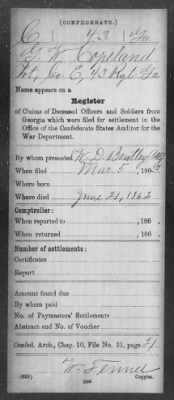 (CONFEDERATE.)
C 43 Ga
G W Copeland
Pvt, Co. C, 43 Regt Ga
Name appears on a
Register
of Claims of Deceased Officers and Soldiers from
Georgia which were filed for settlement in the
Office of the Confederate States Auditor for the
War Department.
By whom presented W. D. Bentley
When filed Mar. 5, 1863
Where born
Where died June 21, 1862
Comptroller:
When reported to , 186
When returned , 186
Number of settlements:
Certificates
Report
Amount found due
By whom paid
No. of Paymasters' Settlements
Abstract and No. of Voucher
Confed. Arch., Chap. 10, File No. 31, page 21
W. Fenner
(635) Copyist.